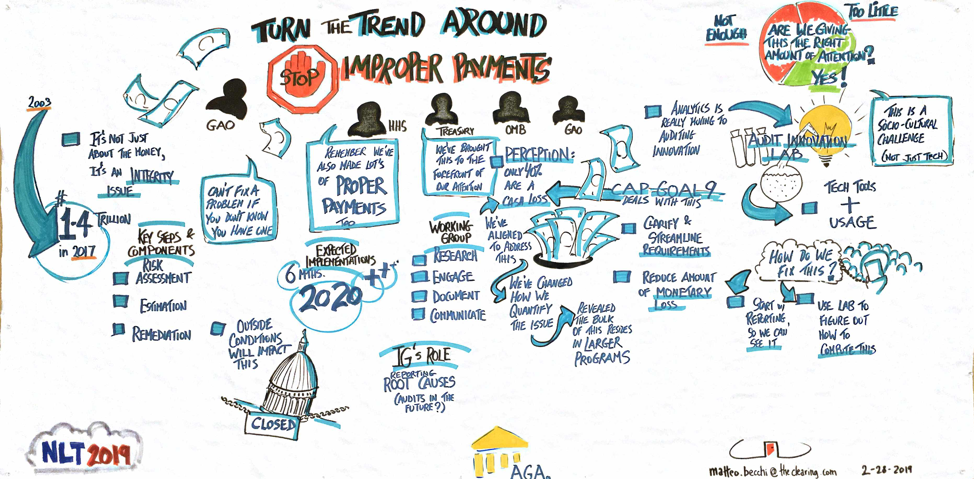 TURN THE TREND AROUND
STOP
IMPROPER PAYMENTS
NOT
ENOUGH
TOO LITTLE
ARE WE GIVING
THIS THE RIGHT
AMOUNT OF ATTENTION?
YES!
2003
IT'S NOT JUST
ABOUT THE MONEY,
IT'S AN INTEGRITY
ISSUE
#
1.4
TRILLION
in 2017
KEY STEPS &
COMPONENTS
RISK
ASSESSMENT
ESTIMATION
REMEDIATION
GAO
CAN'T FIX A
PROBLEM IF
YOU DON'T KNOW
YOU HAVE ONE
HHS
REMEMBER WE'VE
ALSO MADE LOTS
OF PROPER
PAYMENTS
TOO
EXPECTED
IMPLEMENTATIONS
6 MTHS. ++
2020
OUTSIDE
CONDITIONS
WILL IMPACT
THIS
CLOSED
TREASURY
WE'VE BROUGHT
THIS TO THE
FOREFRONT OF
OUR ATTENTION
WORKING
GROUP
RESEARCH
ENGAGE
DOCUMENT
COMMUNICATE
IG'S ROLE
REPORTING
ROOT CAUSES
(AUDITS IN THE
FUTURE?)
OMB
PERCEPTION:
ONLY 40%
ARE A
CASH LOSS
WE'VE
ALIGNED
TO ADDRESS
THIS
WE'VE CHANGED
HOW WE
QUANTIFY
THE ISSUE
REVEALED
THE BULK
OF THIS RESIDES
IN LARGER
PROGRAMS
GAO
CAP GOAL 9
DEALS WITH THIS
CLARIFY &
STREAMLINE
REQUIREMENTS
REDUCE AMOUNT
OF MONETARY
LOSS
ANALYTICS IS
REALLY HELPING TO
AUDITING
INNOVATION
AUDIT INNOVATION
LAB
THIS IS A
SOCIO-CULTURAL
CHALLENGE
(NOT JUST TECH)
TECH TOOLS
+
USAGE
HOW DO WE
FIX THIS?
START W/
REPORTING,
SO WE CAN
SEE IT
USE LAB TO
FIGURE OUT
HOW TO
COMBATE THIS
NLT 2019
AGA.
matteo.becchi@theclearing.com 2-28-2019